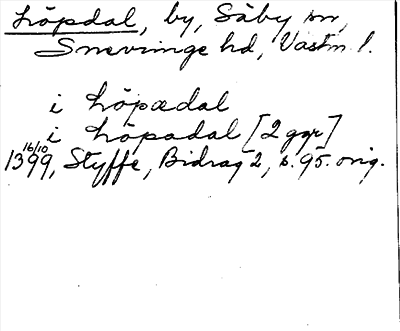 Löpdal, by, Säby sn,
Snevringe hd, Västm. l.
i Löpædal
i Löpadal [2 ggr]
16/10 1399, Styffe, Bidrag 2, s. 95. orig.